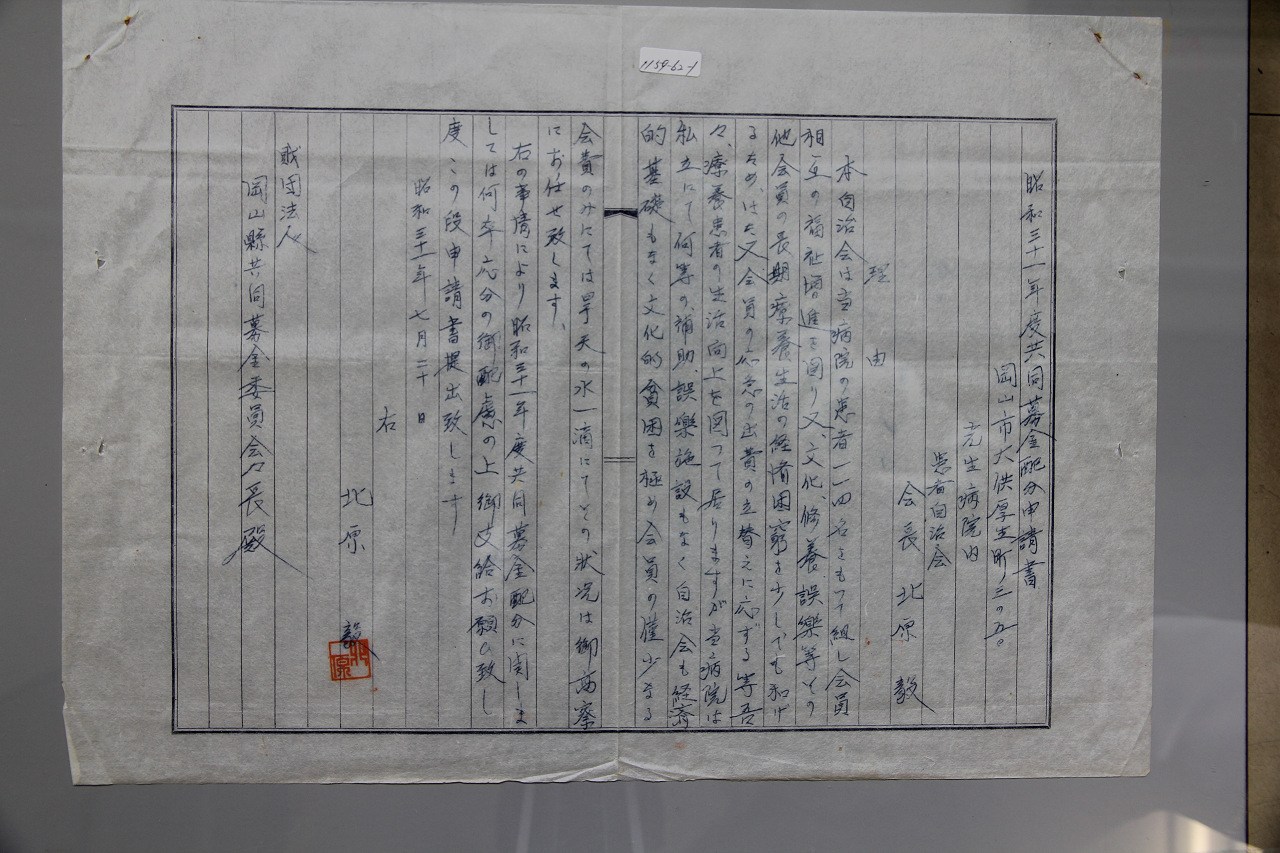 1159-62-1
昭和三十一年度共同募金配分申請書
岡山市大供厚生町ノ三の五〇
光生病院内
患者自治会
会長 北原 毅
理由
本自治会は当病院の患者一一四名をもつて組し会員
相互の福祉増進を図り又、文化、修養誤樂等その
他会員の長期療養生活の経済困窮を少しでも和げ
るため、はた又会員の応急の出費の立替えに応ずる等吾
々、療養患者の生活向上を図つて居りますが当病院は
私立にて何等の補助、誤樂施設もなく自治会も経済
的基礎もなく文化的貧困を極め会員の僅少なる
会費のみにては旱天の水一滴にてその状況は御高察
にお任せ致します、
右の事情により昭和三十一年度共同募金配分に関しま
しては何卒応分の御配慮の上御支給お願ひ致し
度くこの段申請書提出致します
昭和三十一年七月二十日
右
北原 毅
財団法人
岡山縣共同募金委員会々長殿